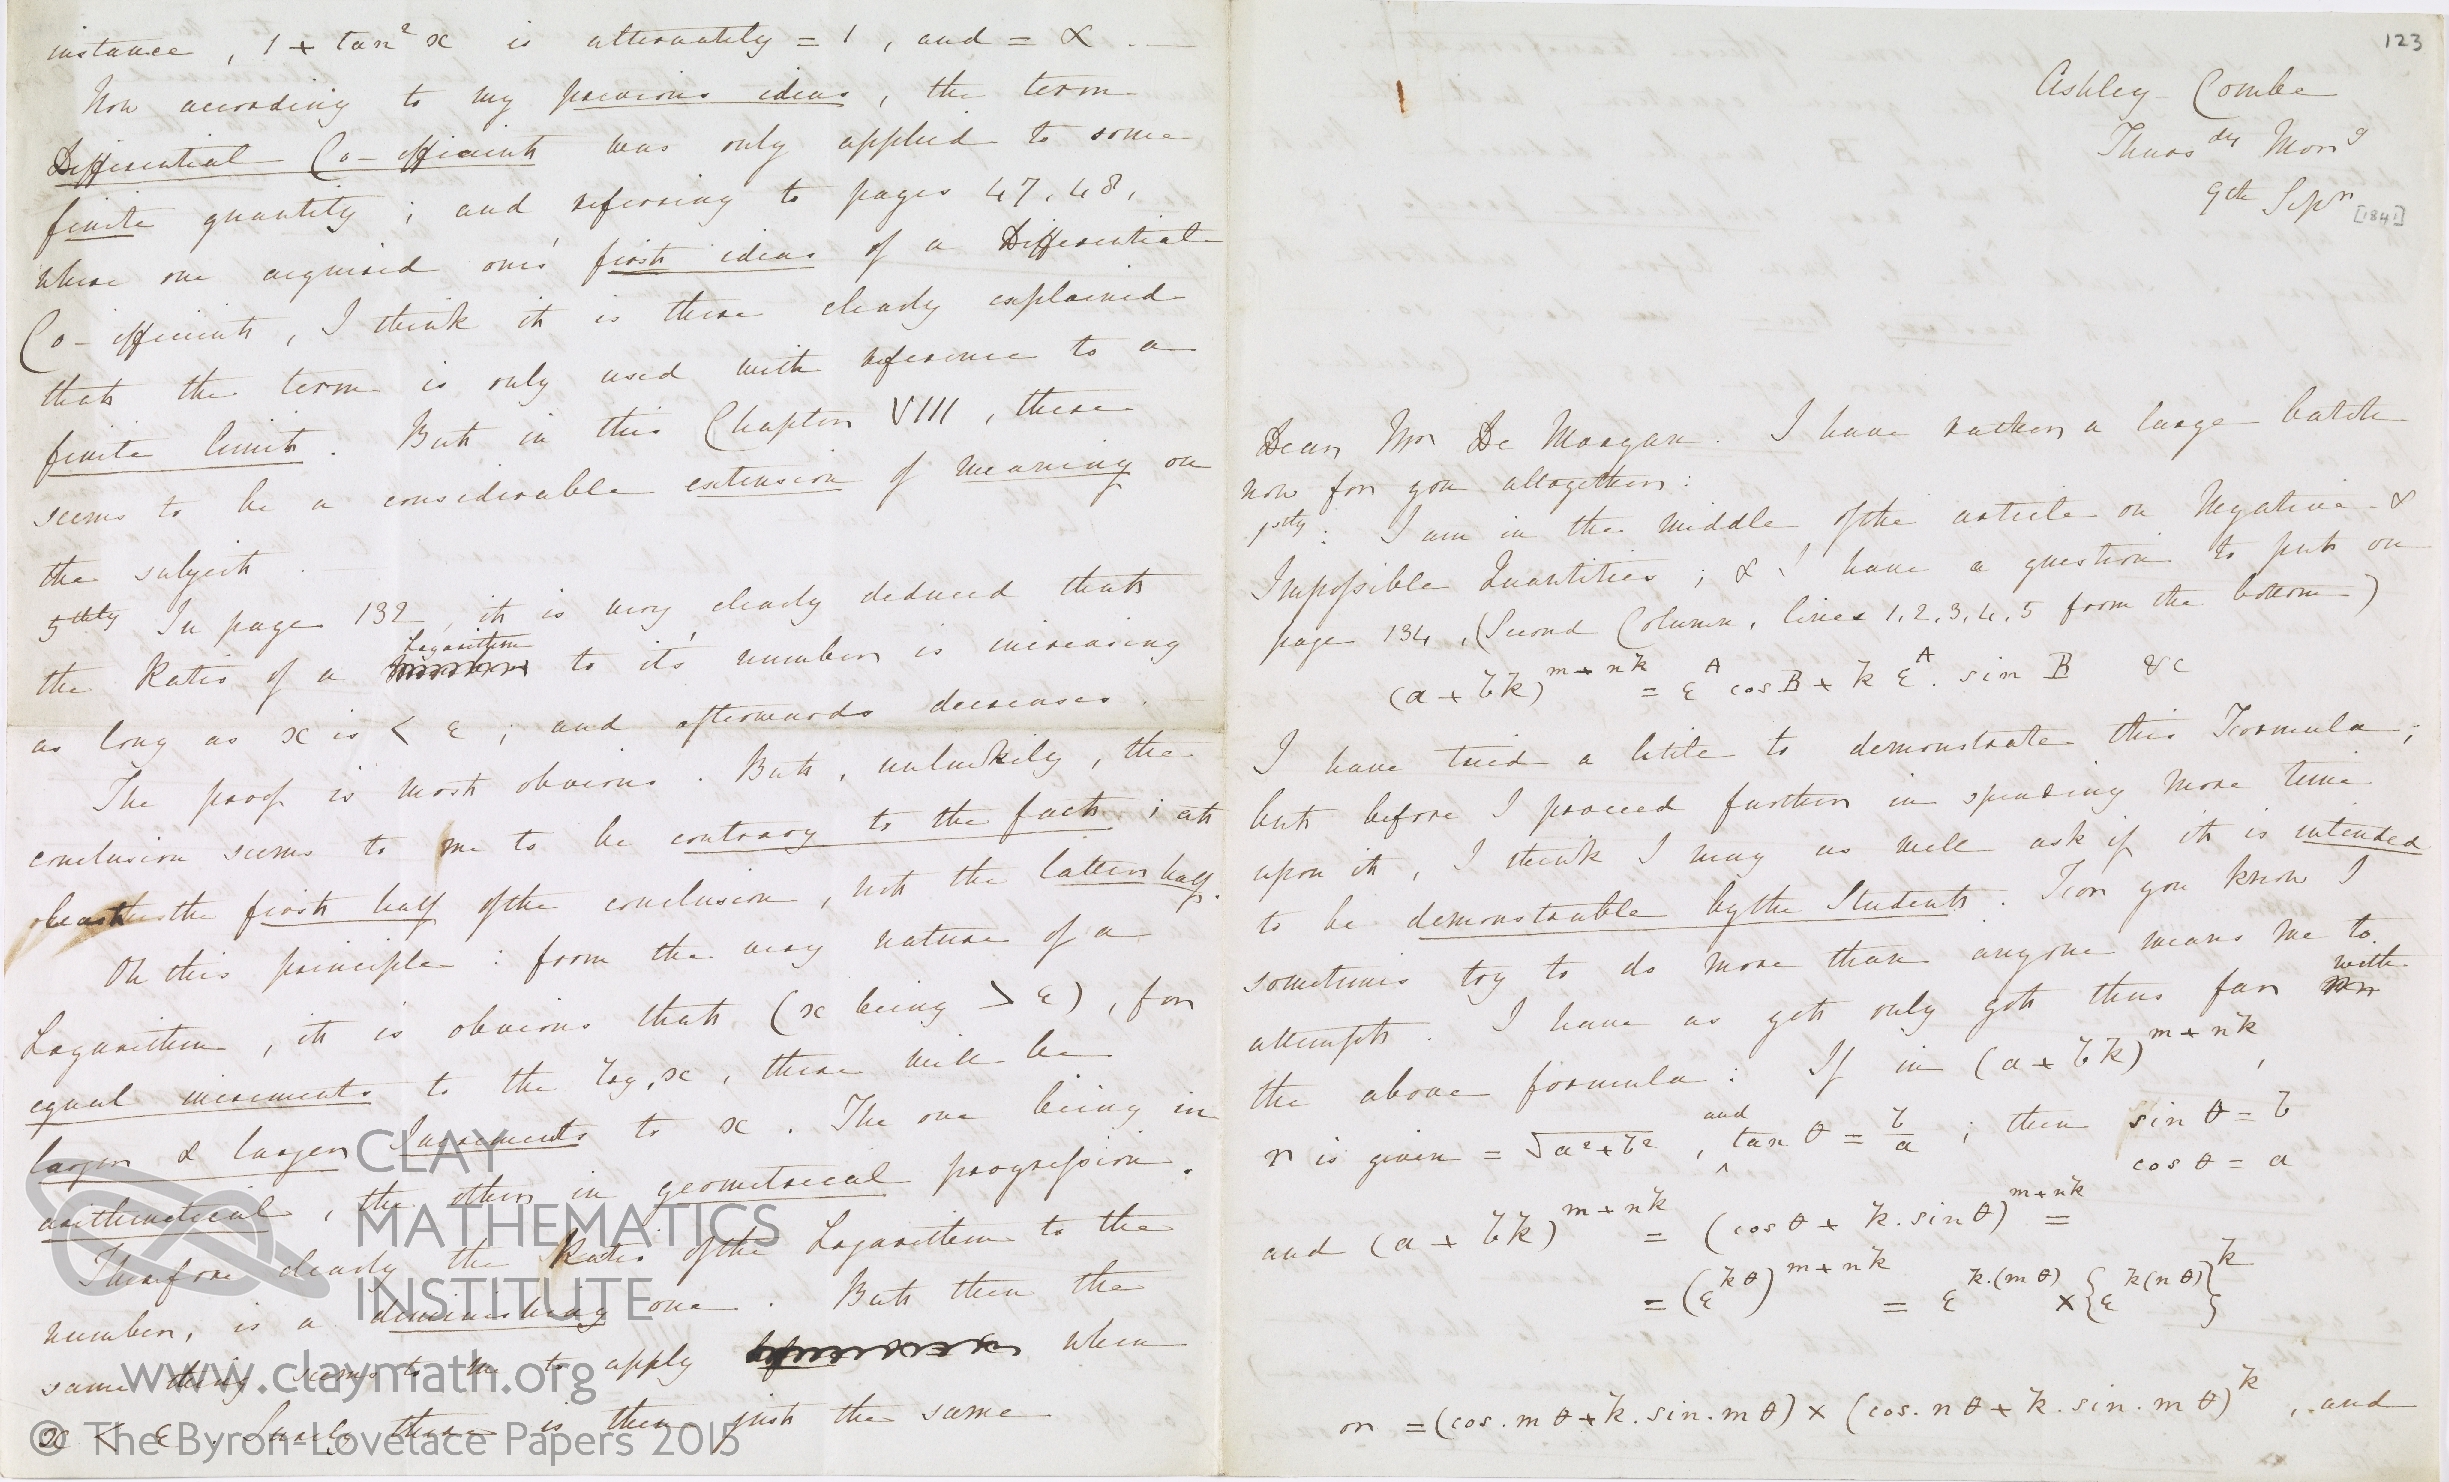 instance, 1 + tan² x is alternately = 1, and = ∝ . —
Now according to my previous ideas, the term
Differential Co-efficient was only applied to some
finite quantity; and referring to pages 47, 48,
where one acquired one's first ideas of a Differential
Co-efficient, I think it is there clearly explained
that the term is only used with reference to a
finite limit. But in this Chapter VIII, there
seems to be a considerable extension of meaning on
the subject.
5thly In page 132, it is very clearly deduced that
Logarithm
the Ratio of a to it's number is increasing
as long as x is < ε; and afterwards decreases.
The proof is most obvious. But, unluckily, the
conclusion seems to me to be contrary to the fact; at
least the first half of the conclusion, not the latter half.
On this principle: from the very nature of a
Logarithm, it is obvious that (x being > ε), for
equal increments to the log, x, there will be
larger & larger Increments to x. The one being in
arithmetical, the other in geometrical progression.
Therefore clearly the Ratio of the Logarithm to the
number, is a diminishing one. But then the
same thing seems to me to apply when
x < ε. Surely there is then just the same
CLAY
MATHEMATICS
INSTITUTE
www.claymath.org
© The Byron-Lovelace Papers 2015
123
Ashley Combe
Thursdy Morng
9th Sepr [1841]
Dear Mr De Morgan. I have rather a large batch
now for you altogether:
1stly: I am in the middle of the article on Negative &
Impossible Quantities; & I have a question to put on
page 134, (Second Column, lines 1, 2, 3, 4, 5 from the bottom)
(a + bk)^{m + nk} = ε^A cos B + k ε^A . sin B &c
I have tried a little to demonstrate this Formula;
but before I proceed further in spending more time
upon it, I think I may as well ask if it is intended
to be demonstrable by the Student. For you know I
sometimes try to do more than anyone means me to
attempt. I have as yet only got thus far with
the above formula: If in (a + bk)^{m + nk},
r is given = √a²+b², and tan θ = b/a ; then sin θ = b
cos θ = a
and (a + bk)^{m + nk} = (cos θ + k . sin θ)^{m + nk} =
= (ε^{kθ})^{m + nk} = ε^{k.(mθ)} × {ε^{k(nθ)}}^k
or = (cos . m θ + k . sin . m θ) × (cos . n θ + k . sin . m θ)^k, and